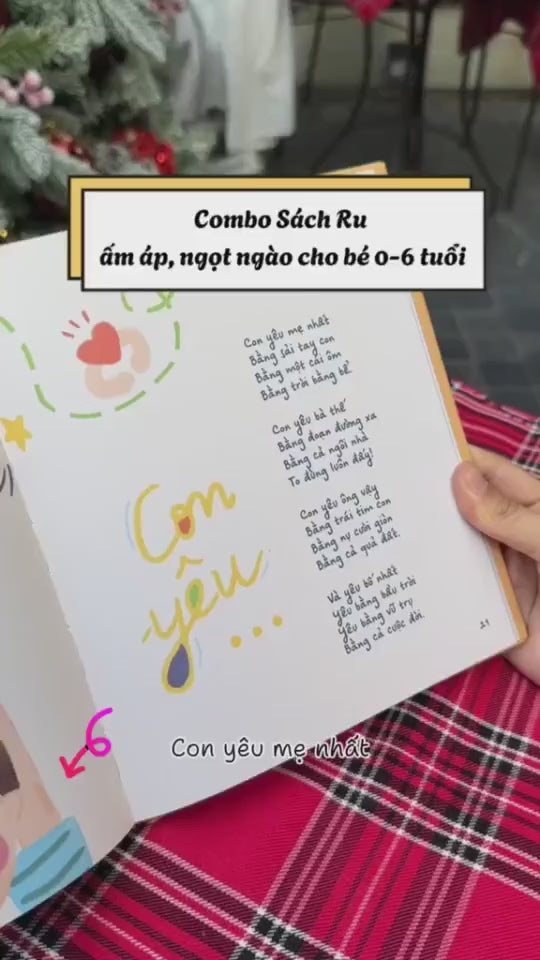 Combo Sách Ru
ấm áp, ngọt ngào cho bé 0-6 tuổi
Con yêu mẹ nhất
Bằng sải tay con
Bằng một cái ôm
Bằng trời bằng bể
Con yêu bà thế
Bằng đoạn đường xa
Bằng cả ngôi nhà
To đùng luôn đấy!
Con yêu ông vậy
Bằng trái tim con
Bằng nụ cười giòn
Bằng cả quả đất.
Và yêu bố nhất
Yêu bằng bầu trời
Yêu bằng vũ trụ
Bằng cả cuộc đời.
Con
yêu
...
21
Con yêu mẹ nhất